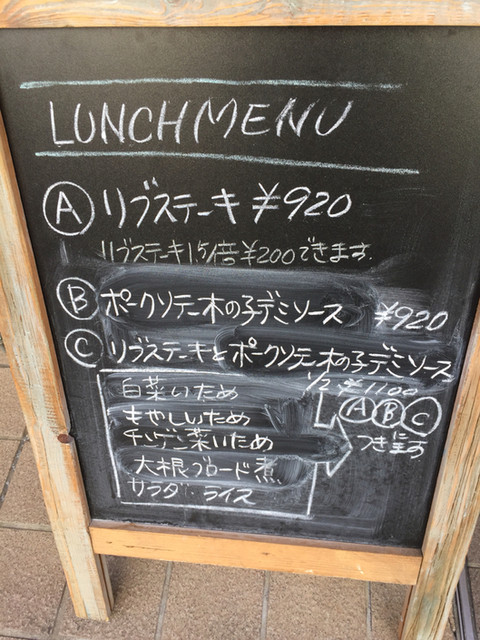 LUNCH MENU
Ⓐ リブステーキ ¥920
リブステーキ1.5倍¥200できます.
Ⓑ ポークソテー木の子デミソース ¥920
Ⓒ リブステーキとポークソテー木の子デミソース
1/2 ¥1100
白菜いため
もやしいため
チンゲン菜いため
大根ブロード煮
サラダ・ライス
ⒶⒷⒸ
に
つきます